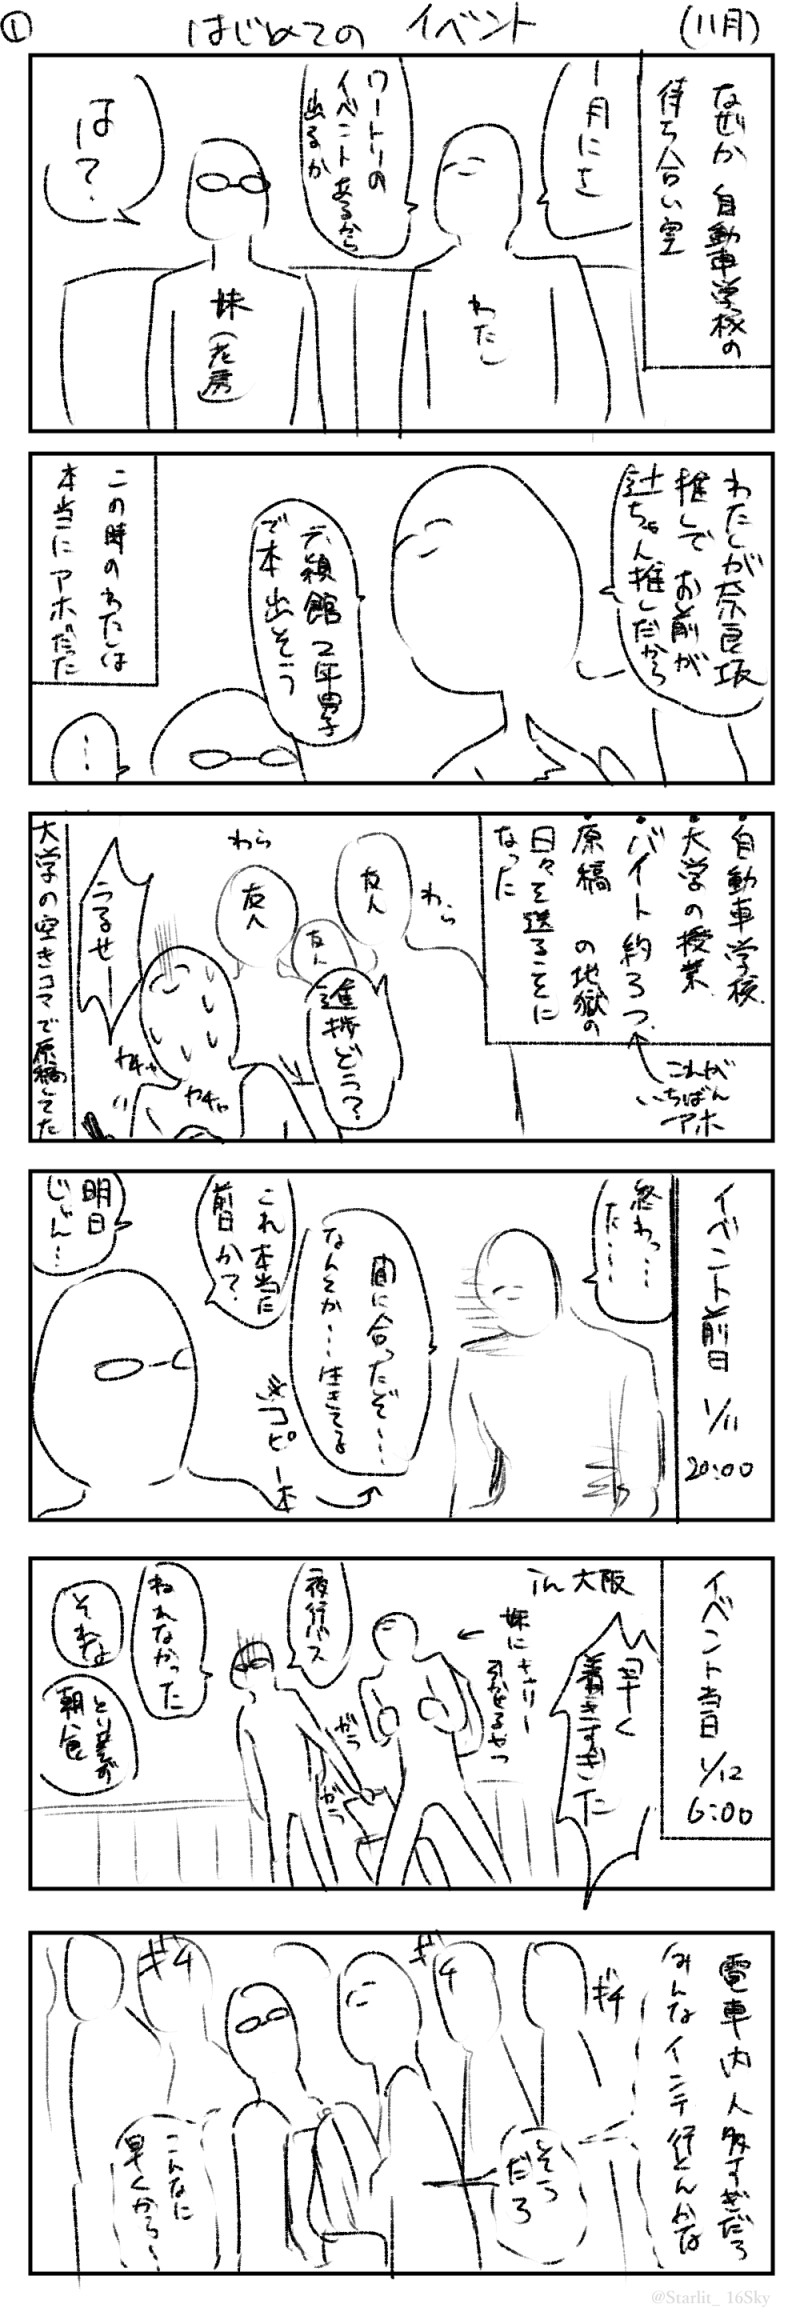 ①
はじめての イベント
(11月)
なぜか 自動車学校の
待ち合い室
1月にさ
ワートリの
イベントあるから
出るか
は?
わたし
妹
わたしが奈良坂
推しで お前が
辻ちゃん推しだから
六頴館 2年男子
で本出そう
…
この時のわたしは
本当にアホだった
・自動車学校
・大学の授業
・バイト約3つ
・原稿 の地獄の
日々を送ることに
なった
これが
いちばん
アホ
わら
わら
友人
友人
友人
進捗どう?
うるせー
カチャ
カチャ
大学の空きコマで原稿してた
イベント前日 1/11
20:00
終わっ……
た……
間に合ったぞ……
なんとか……生きてる
※コピー本
これ本当に
前日か?
明日
じゃん…
イベント当日 1/12
6:00
早く
着きすぎた
in 大阪
妹にキャリー
引かせるやつ
ガラ
ガラ
夜行バス
ねれなかった
それな
とりま
朝食
電車内人多すぎだろ
みんなインテ行くんかな
ギチ
ギチ
ギチ
そう
だろ
こんなに
早くから〜
@Starlit_ 16Sky